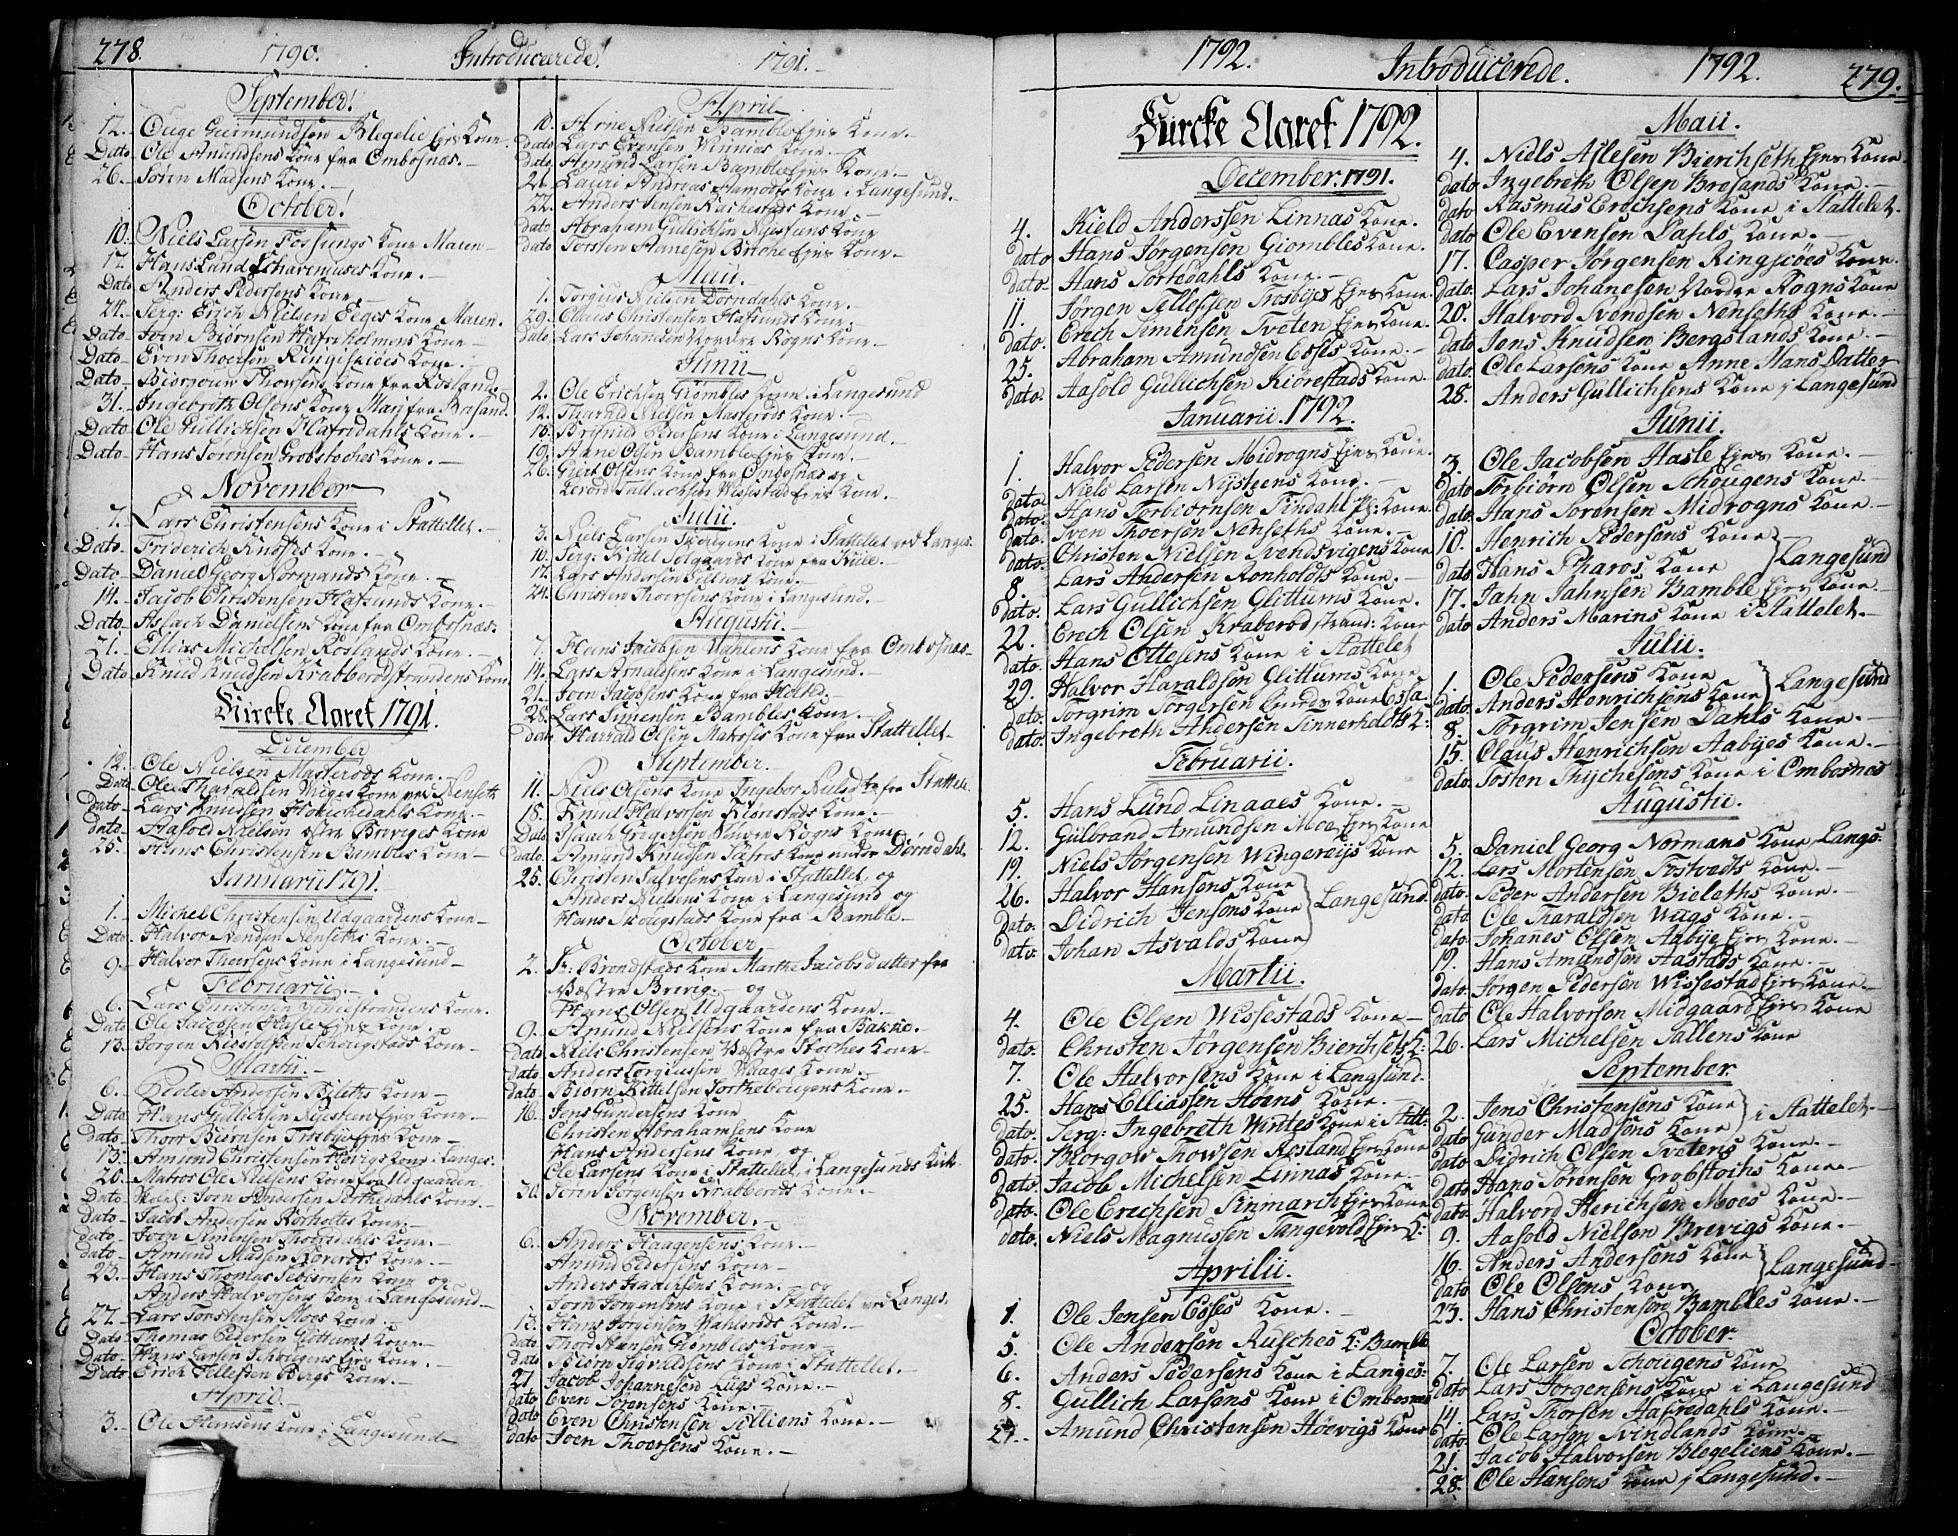 278. 1790. Introducerede! 1791.
September!
12. Ouge Guumundsøn Blegelie Ejer Kone.
Dato Ole Anundsens Kone fra Ombosnæs.
26. Søren Madsens Kone.
October!
10. Niels Larsen Fossungs Kone Maren
17. Hans Lund Schavenuses Kone.
Dato Anders Pedersens Kone
24. Serg: Erich Nielsen Eeges Kone Maren.
Dato Joen Biørnsen Hafsholmens Kone
Dato Even Thoersen Ringsiøes Kone.
Dato Biørgow Thowsens Kone fra Rosland
31. Ingebrith Olsens Kone Mari fra Bresand.
Dato Ole Gullichsen Hafsdahls Kone.
Dato Hans Sørensen Grobstoches Kone.
November
7. Lars Christensens Kone i Stattellet.
Dato Friderich Knoses Kone.
Dato Daniel Georg Normands Kone.
14. Jacob Christensen Hafsunds Kone.
Dato Aslach Danielsens Kone fra Ombosnæs.
21. Ellias Michelsen Roslands Kone.
Dato Knud Knudsen Krabberodstrandens Kone
Kircke Aaret 1791.
December
12. Ole Nielsen Masterøds Kone.
Dato Ole Tharaldsen Wiges Kone ved Nenseth
dato Lars Knudsen Kone.
dato Aasold Nielsen øvre Breviges Kone
25. Hans Christensen Bambles Kone
Januarii 1791.
1. Michel Christensen Udgaardens Kone
Dato Halvor Svendsen Nenseths Kone.
9. Halvor Thoersens Kone i Langesund
Februarii.
6. Lars Christensen Kone.
Dato Ole Jacobsen Hasle Ejer Kone.
13. Jørgen Schougstads Kone
Martii.
6. Peder Andersen Bieleths Kone
Dato Hans Gullichsen Nysteen Ejer Kone.
dato Thore Biørnsen Trosbye Ejer Kone
13. Amund Christensen Høevigs Kone i Langes.
20. Matros Ole Nielsens Kone fra Udgaarden
Dato Joen Andersen Sortedahls Kone.
dato Jacob Andersen Rorholtes Kone.
dato Joen Simensen Kone.
dato Amund Madsen Kone.
25. Hans Thomas Sebiørnsen Kone og
Anders Halvorsens Kone i Langesund
27. Lars Torstensen Moes Kone
Dato Thomas Pedersen Glittums Kone
Dato Hans Larsen Schougens Ejer Kone.
Dato Erich Tellefsen Bergs Kone.
April
3. Ole Hansens Kone i Langesund
April
10. Arne Nielsen Bamble Ejer Kone.
dato Lars Evensen Kone.
dato Amund Larsen Bamble Ejer Kone.
21. Lauri Andreas Hamods Kone i Langesund.
22. Anders Jensen Kone
dato Abraham Gullichsen Nysteens Kone
dato Torsten Hanesen Birche Ejer Kone.
Maii.
1. Torgius Nielsen Dørndahls Kone.
29. Claus Christensen Hafsunds Kone.
Dato Lars Johansen Nordre Rogns Kone
Junii
2. Ole Erichsen Giømbles Kone i Langesund
12. Tharald Nielsen Masterøds Kone.
13. Pedersens Kone i Langesund.
19. Hane Olsen Bamble Ejer Kone
26. Giert Olsens Kone fra Ombosnæs og
Tellachsen Wissestad Ejer Kone.
Julii.
3. Niels Larsen Kone i Stattellet ved Langes.
10. Serg: Kittel Kone fra Kiile.
17. Lars Andersen Kone.
24. Christen Thoersens Kone i Langesund.
Augusti.
7. Hans Jacobsen Wahlens Kone fra Ombosnæs
14. Lars Arnaldsens Kone i Langesund.
21. Joen Jacobsens Kone fra
28. Lars Simensen Bambles Kone.
dato Harrald Olsen Kone fra Stattellet
September.
11. Niels Olsens Kone Ingebor Nielsdtr fra Stattele
18. Knud Halvorsen Kiønstads Kone.
Dato Isaach Gregersen Rogns Kone
dato. Amund Knudsen Kone under Dørndahl.
25. Christen Kone i Stattellet, og
Anders Nielsens Kone i Langesund og
Hans Skougstads Kone fra Bamble.
October
2. Sr: Brondsteds Kone Marthe Jacobsdatter fra
Væstre Brevig. og
Hans Olsen Udgaardens Kone.
9. Amund Nielsens Kone fra Bakke.
dato Niels Christensen Væstre Stoches Kone
dato Anders Jørgensen Waages Kone.
dato Biørn Kittelsen Kone.
16. Jens Gundersens Kone
Christen Abrahamsens Kone
Hans Andersens Kone og
Ole Larsens Kone i Stattellet, i Langesunds Kirk.
30. Søren Jørgensen Krabberøds Kone.
November.
6. Anders Haagensens Kone
Amund Pedersens Kone
Anders Isaachsens Kone. og
Joen Jørgensens Kone i Stattelet ved Langes.
13. Hans Jørgensen Kone.
dato Thord Hansen Giombles Kone.
dato Biørn Kone i Stattellet.
27 Jacob Johannesen Lugs Kone.
dato Even Sørensens Kone.
dato Even Christensen Kone.
dato Joen Thoersens Kone.
1792. Introducerede. 1792. 279.
Kircke Aaret 1792.
December. 1791.
4. Kield Anderssen Linnæs Kone.
dato Hans Jørgensen Giombles Kone.
dato. Hans Sortedahls Kone.
11. Jørgen Tellefsen Trosbyes Ejer Kone.
dato. Erech Simensen Tveten Ejer Kone.
25. Abraham Amundsen Esses Kone.
dato. Aasold Gullichsen Kiørestads Kone.
Januarii. 1792.
1. Halvor Pedersen Midrogns Ejer Kone.
dato Niels Larsen Nysteens Kone.
dato. Hans Torbiørnsen Findahl Pl: Kone
dato. Sven Thoersen Nenseths Kone.
dato. Christen Nielsen Svendsvigens Kone
8. Lars Andersen Ronholdts Kone.
dato. Lars Gullichsen Glittums Kone.
22. Erech Olsen Kraberød strand: Kone
dato. Hans Ottesens Kone i Stattelet
29. Halvor Haraldsøn Glittums Kone
dato. Torgrim Torgersen Kone
dato. Ingebreth Andersen Tinnerholdts K:
Februarii.
5. Hans Lund Linaaes Kone.
12. Gulbrand Amundsen Moe Ejer Kone
19. Niels Jørgensen Wingereijs Kone
26. Halvor Hansens Kone
dato. Didrich Jensens Kone Langesund.
dato. Johan Asvalds Kone
Martii.
4. Ole Olsen Wissestads Kone
dato. Christen Jørgensen Bierchseths K:
7. Ole Halvorsens Kone i Langsund.
25. Hans Elliassen Høens Kone.
dato. Serg: Ingebreth Wintes Kone i Statt:
dato. Biørgow Thowsen Rosland Ejer Kone
dato. Jacob Michelsen Linnæs Kone
dato. Ole Erechsen Finmarch Ejer Kone
dato. Niels Magnussen Tangevold Ejer K:
Aprilii.
1. Ole Jensen Esses Kone.
5. Ole Andersøn Rusches K: Bamble
6. Anders Pedersens Kone i Langes:
8. Gullich Larsens Kone i Ombosnæs
27. Amund Christensen Høevigs Kone
Maii.
4. Niels Aslesen Bierchseth Ejer Kone.
dato Ingebreth Olsen Bresands Kone.
dato Rasmus Erechsens Kone i Stattelet.
dato Ole Evensen Dahls Kone.
17. Casper Jørgensen Ringsiøes Kone.
dato. Lars Johanesen Nordre Rogns Kone
20. Halvord Svendsen Nenseths Kone.
dato Jens Knudsen Bergslands Kone.
dato. Ole Larsens Kone Anne Hans Datter
28. Anders Gullichsens Kone i Langesund
Junii.
3. Ole Jacobsen Hasle Ejer Kone.
dato Torbiørn Olsen Schougens Kone.
dato. Hans Sørensen Midrogns Kone
10. Henrich Pedersens Kone
dato. Hans Pharos Kone Langesund
17. Jahn Jahnsen Bamble Ejer Kone
dato Anders Marins Kone i Stattelet.
Julii.
1. Ole Pedersens Kone
dato. Anders Henrichsens Kone Langesund
8. Torgrim Jensen Dahls Kone.
15. Claus Henrichsen Aabyes Kone.
dato. Tosten Thychesens Kone i Ombosnes
Augustii.
5. Daniel Georg Normans Kone, Langs:
12. Lars Mortensen Tostvedts Kone.
dato. Peder Andersen Bieleths Kone.
dato Ole Tharaldsen Wiigs Kone.
dato. Johanes Olsen Aabye Ejer Kone.
19. Hans Amundsen Aastads Kone.
dato. Jørgen Pedersen Wissestad Ejer Kone.
dato Ole Halvorsen Midgaard Ejer Kone
26. Lars Michelsen Sallens Kone
September
2. Jens Christensens Kone
dato Gunder Madsens Kone i Stattelet.
dato Didrich Olsen Tvetens Kone.
dato Hans Sørensen Grobstochs Kone
dato. Halvord Henrichsen Moes Kone.
9. Aasold Nielsen Brevigs Kone.
16. Anders Andersens Kone
dato Ole Olsens Kone Langesund
23. Hans Christensen Bambles Kone.
October.
7. Ole Larsen Schougens Kone
dato Lars Jørgensens Kone i Langesund
14. Lars Thorsen Hafredahls Kone.
dato. Ole Larsen Svindlands Kone.
21. Jacob Halvorsen Blegeliens Kone.
28. Ole Hansens Kone i Langesund.